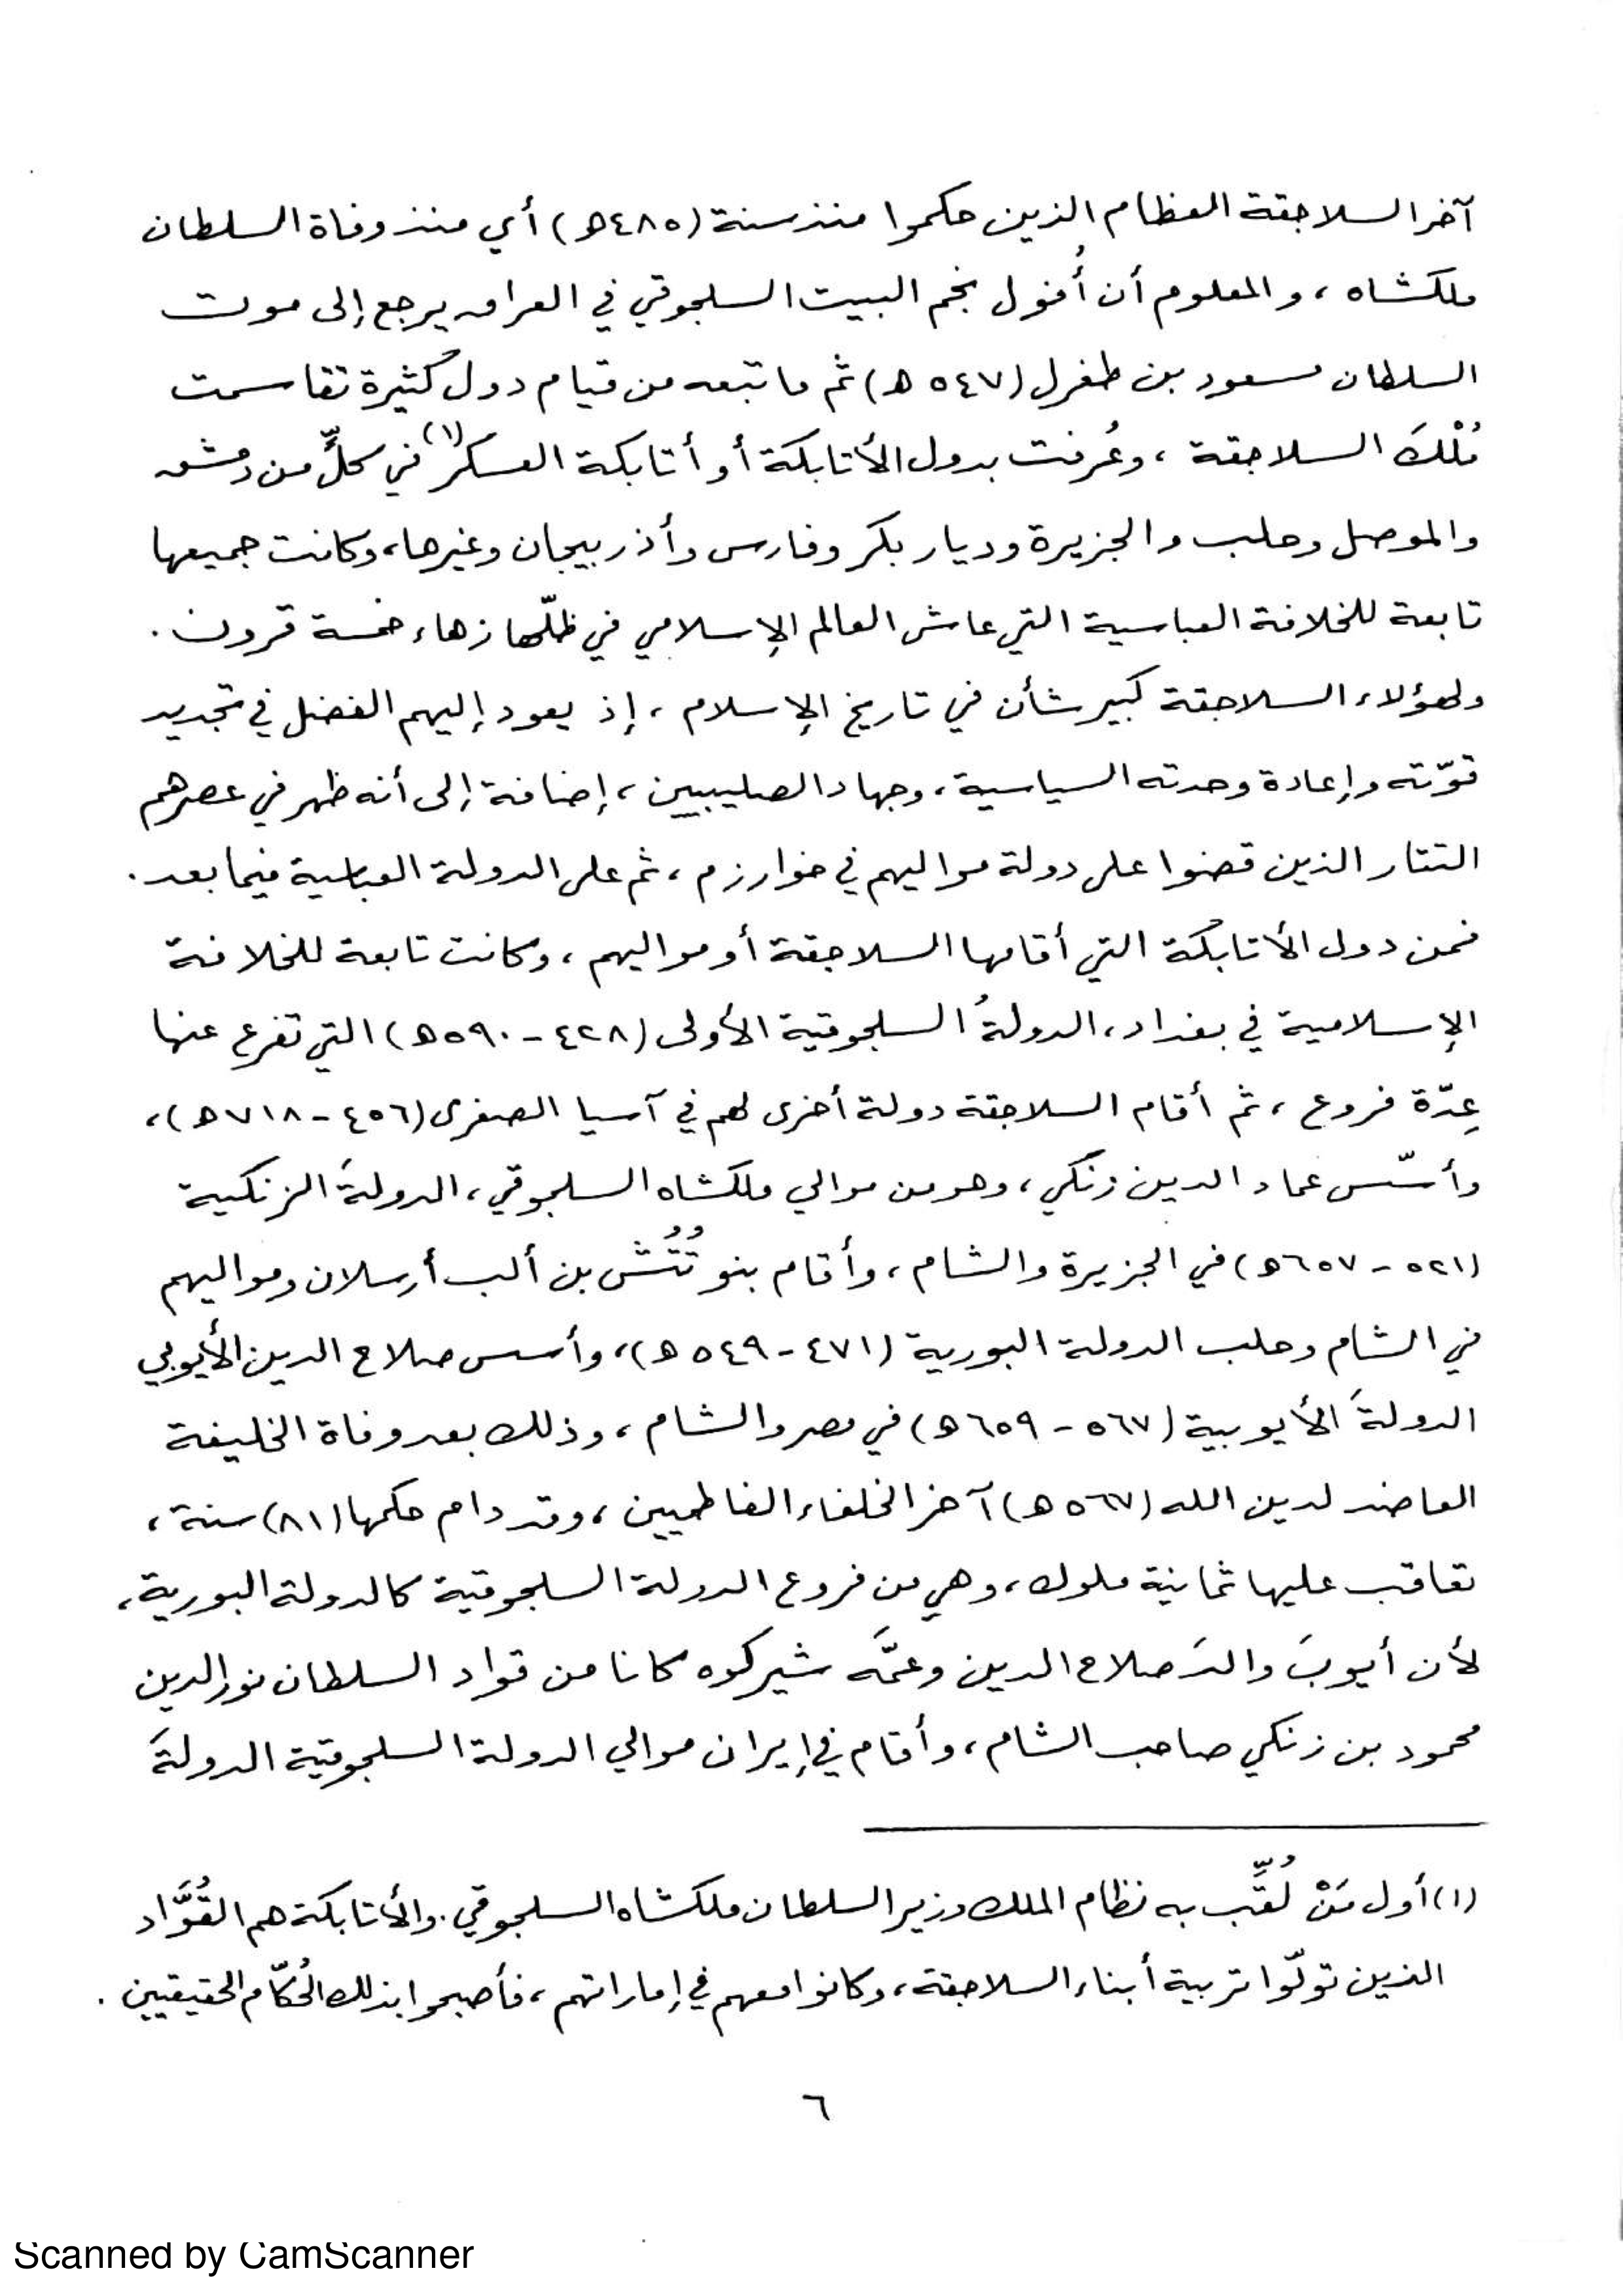 آخر السلاجقة العظام الذين حكموا منذ سنة (٤٨٥ ه) أي منذ وفاة السلطان
ملكشاه ، والمعلوم أن أُفول نجم البيت السلجوقي في العراق يرجع إلى موت
السلطان مسعود بن طغرل (٥٤٧ ه) ثم ما تبعه من قيام دول كثيرة تقاسمت
مُلْكَ السلاجقة ، وعُرفت بدول الأتابكة أو أتابكة العسكر(١) في كلٍّ من دمشق
والموصل وحلب والجزيرة وديار بكر وفارس وأذربيجان وغيرها، وكانت جميعها
تابعة للخلافة العباسية التي عاش العالم الإسلامي في ظلّها زهاء خمسة قرون .
ولهؤلاء السلاجقة كبير شأن في تاريخ الإسلام ، إذ يعود إليهم الفضل في تجديد
قوّته وإعادة وحدته السياسية ، وجهاد الصليبيين ، إضافة إلى أنه ظهر في عصرهم
التتار الذين قضوا على دولة مواليهم في خوارزم ، ثم على الدولة العباسية فيما بعد .
فمن دول الأتابكة التي أقامها السلاجقة أو مواليهم ، وكانت تابعة للخلافة
الإسلامية في بغداد ، الدولةُ السلجوقية الأولى (٤٢٨ - ٥٩٠ ه) التي تفرع عنها
عِدّة فروع ، ثم أقام السلاجقة دولة أخرى لهم في آسيا الصغرى (٤٥٦ - ٧١٨ ه) ،
وأسّس عماد الدين زنكي ، وهو من موالي ملكشاه السلجوقي ، الدولةَ الزنكية
(٥٢١ - ٦٥٧ ه) في الجزيرة والشام ، وأقام بنو تُتُش بن ألب أرسلان ومواليهم
في الشام وحلب الدولة البورية (٤٧١ - ٥٤٩ ه) ، وأسس صلاح الدين الأيوبي
الدولةَ الأيوبية (٥٦٧ - ٦٥٩ ه) في مصر والشام ، وذلك بعد وفاة الخليفة
العاضد لدين الله (٥٦٧ ه) آخر الخلفاء الفاطميين ، وقد دام حكمها (٨١) سنة ،
تعاقب عليها ثمانية ملوك ، وهي من فروع الدولة السلجوقية كالدولة البورية ،
لأن أيوبَ والدَ صلاح الدين وعمَّه شيركوه كانا من قواد السلطان نور الدين
محمود بن زنكي صاحب الشام ، وأقام في إيران موالي الدولة السلجوقية الدولةَ
(١) أول مَنْ لُقِّب به نظام الملك وزير السلطان ملكشاه السلجوقي . والأتابكة هم القُوَّاد
الذين تولّوا تربية أبناء السلاجقة ، وكانوا معهم في إماراتهم ، فأصبحوا بذلك الحُكّام الحقيقيين .
٦
Scanned by CamScanner